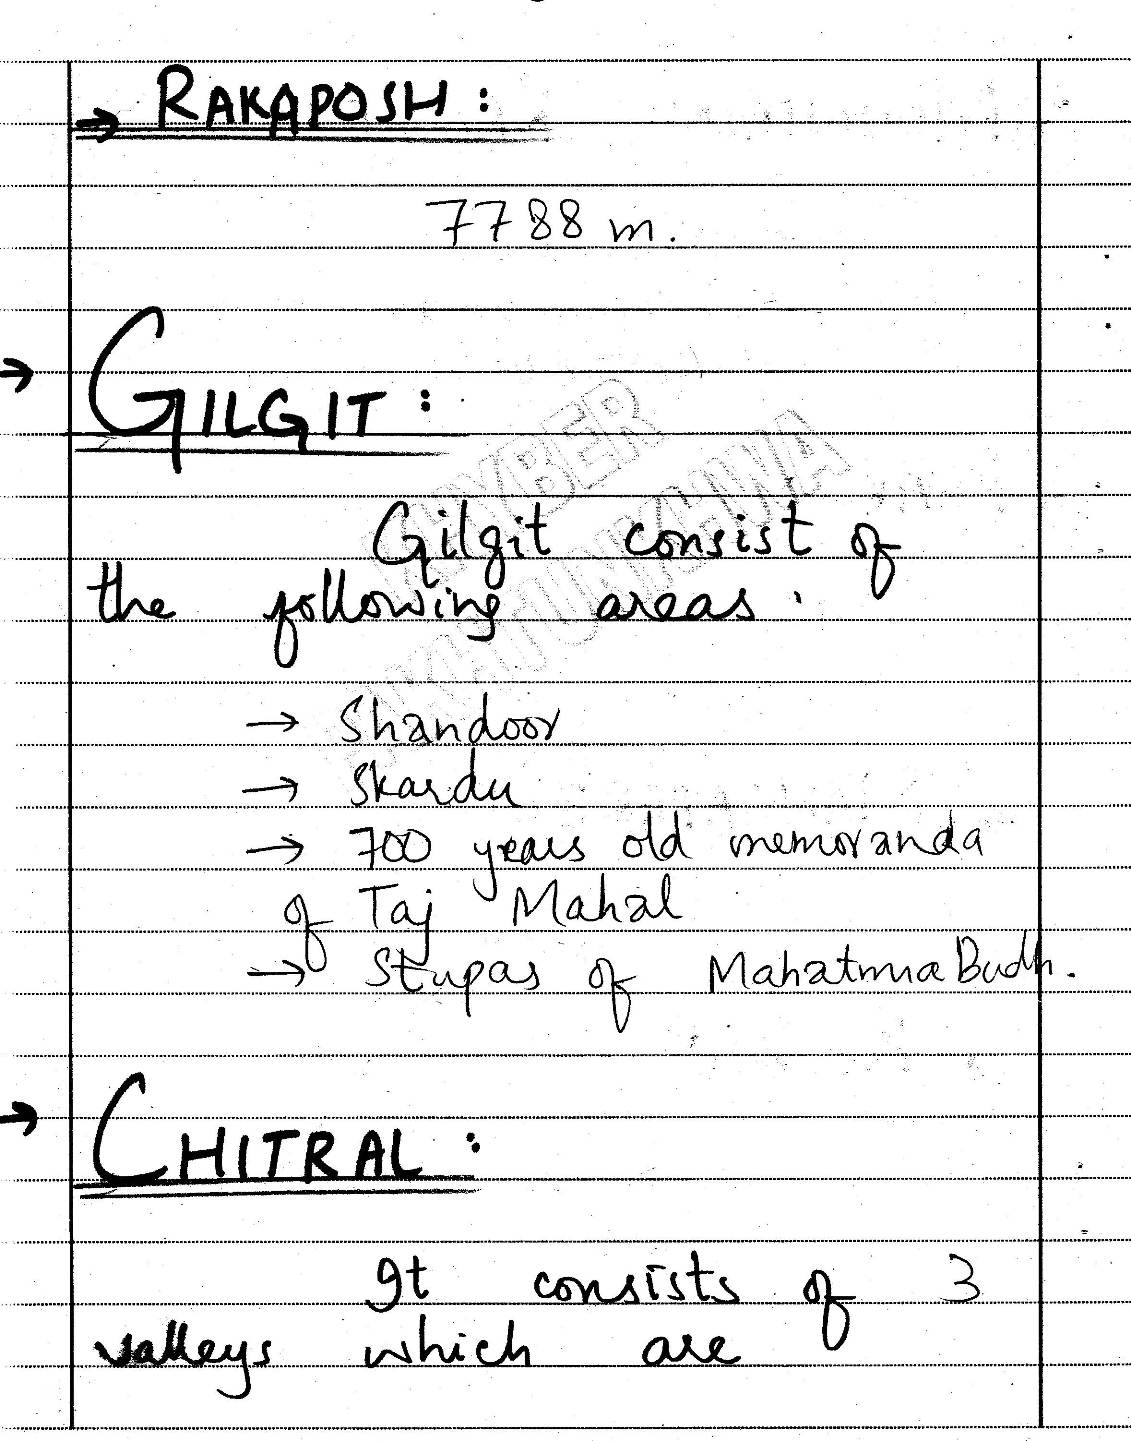 → RAKAPOSH:
7788 m.
→ GILGIT:
Gilgit consist of
the following areas.
→ Shandoor
→ Skardu
→ 700 years old memoranda
of Taj Mahal
→ Stupas of Mahatma Budh.
→ CHITRAL:
It consists of 3
valleys which are
KHYBER
PAKHTUNKHWA